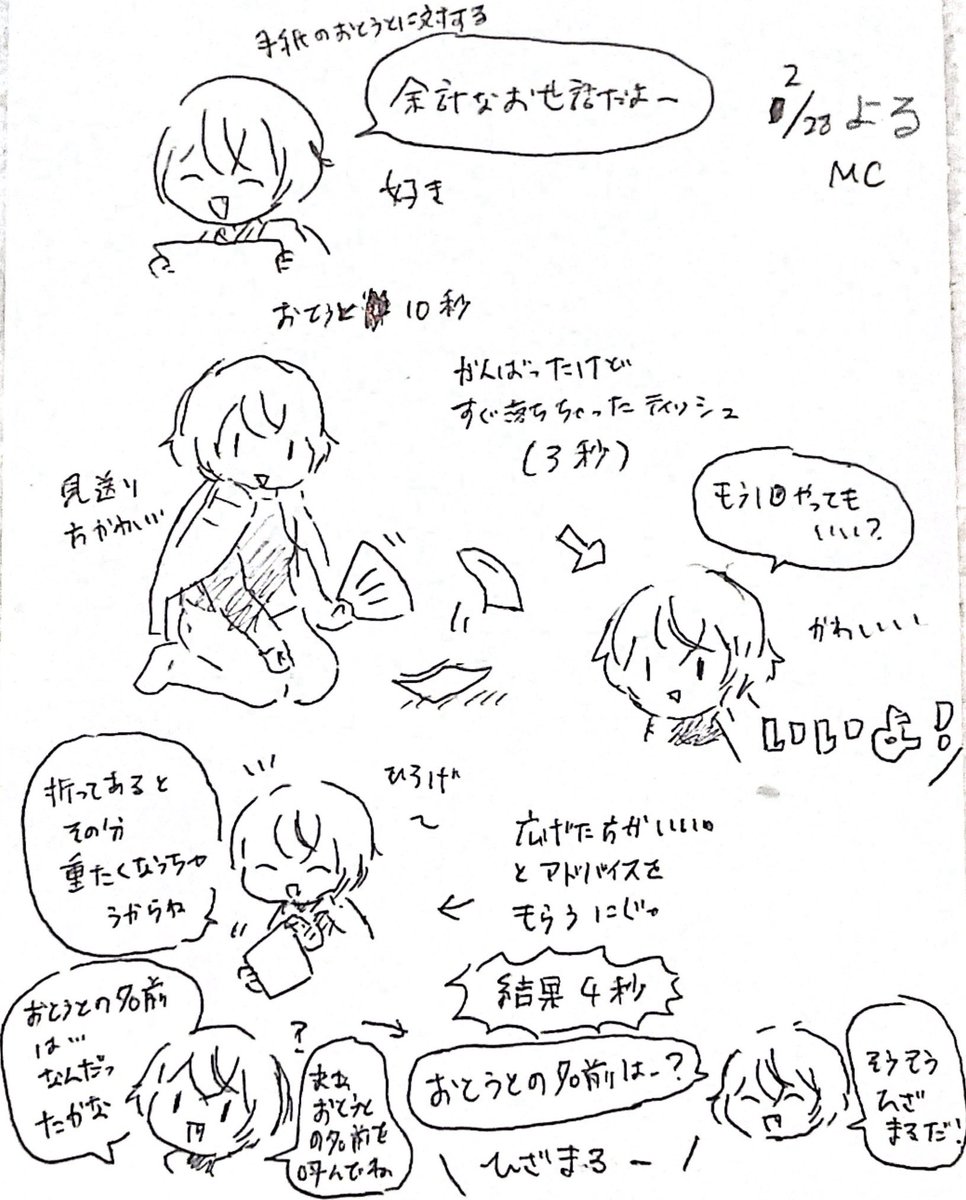 手紙のおとうとに対する
余計なお世話だよー
2/23 よる
MC
好き
おとうと 10秒
がんばったけど
すぐ落ちちゃったティッシュ
(3秒)
見送り
方かわいい
もう1回やっても
いい?
かわいいい
いいよ!
折ってあると
その分
重たくなっちゃ
うからね
ひろげ
〜
広げた方がいいの
とアドバイスを
もらうにじゃ
結果4秒
おとうとの名前
は…
なんだっ
たかな
?
まあ、
おとうと
の名前を
呼んでね
おとうとの名前はー?
\ ひざまるー /
そうそう
ひざ
まるだ!